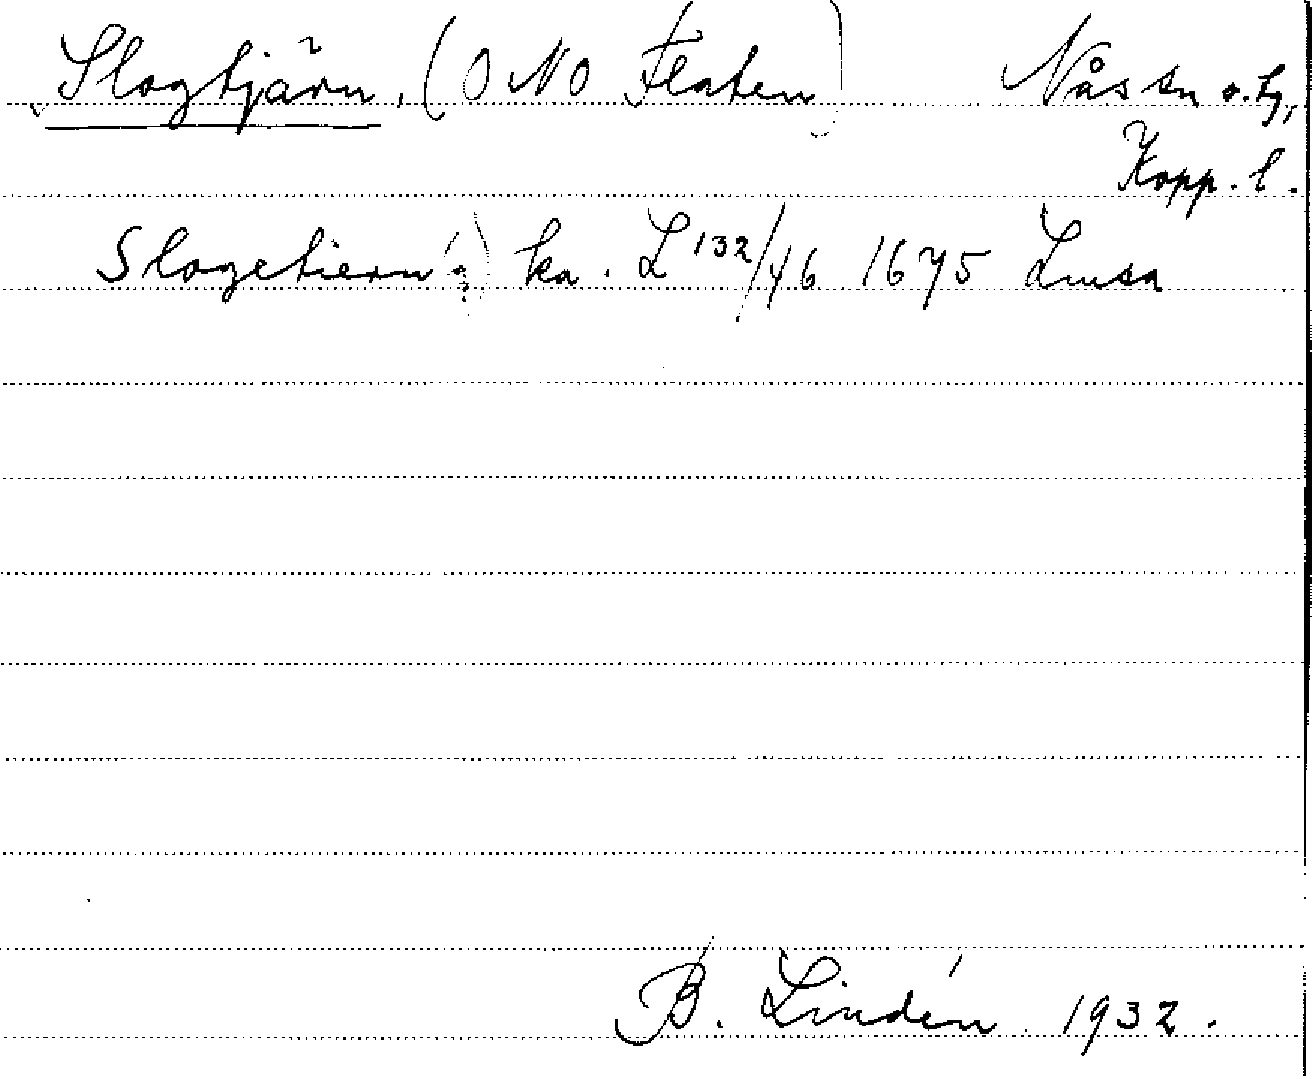 Slogtjärn, (ONO Flaten) Nås sn o. tg,
Kopp. l.
Slogetiern (?) ka. L 132/46 1675 Lmsa
B. Lindén 1932.